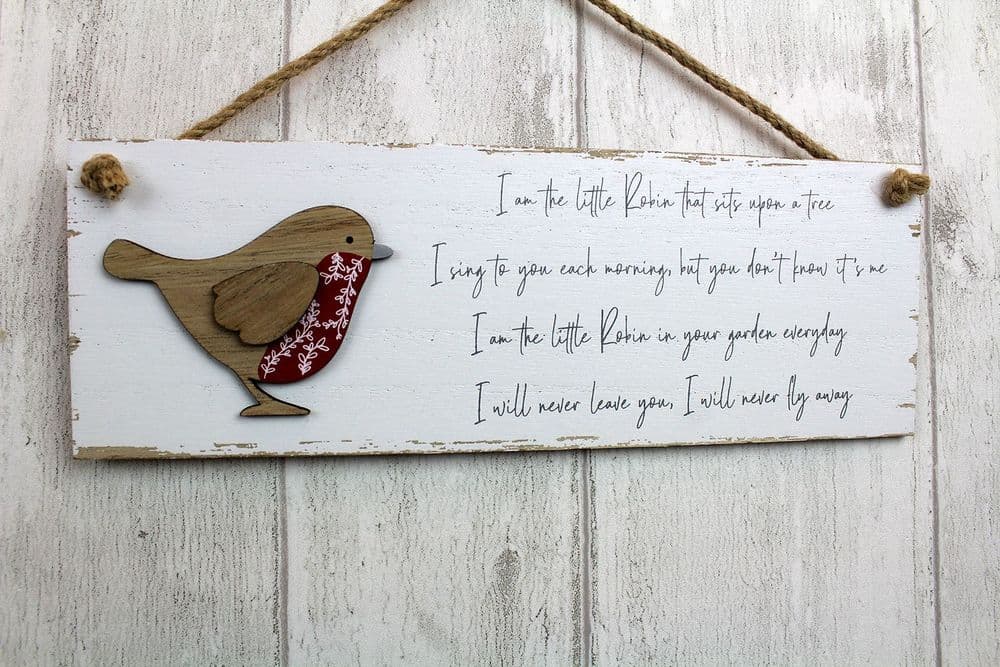 I am the little Robin that sits upon a tree
I sing to you each morning, but you don't know it's me
I am the little Robin in your garden everyday
I will never leave you, I will never fly away